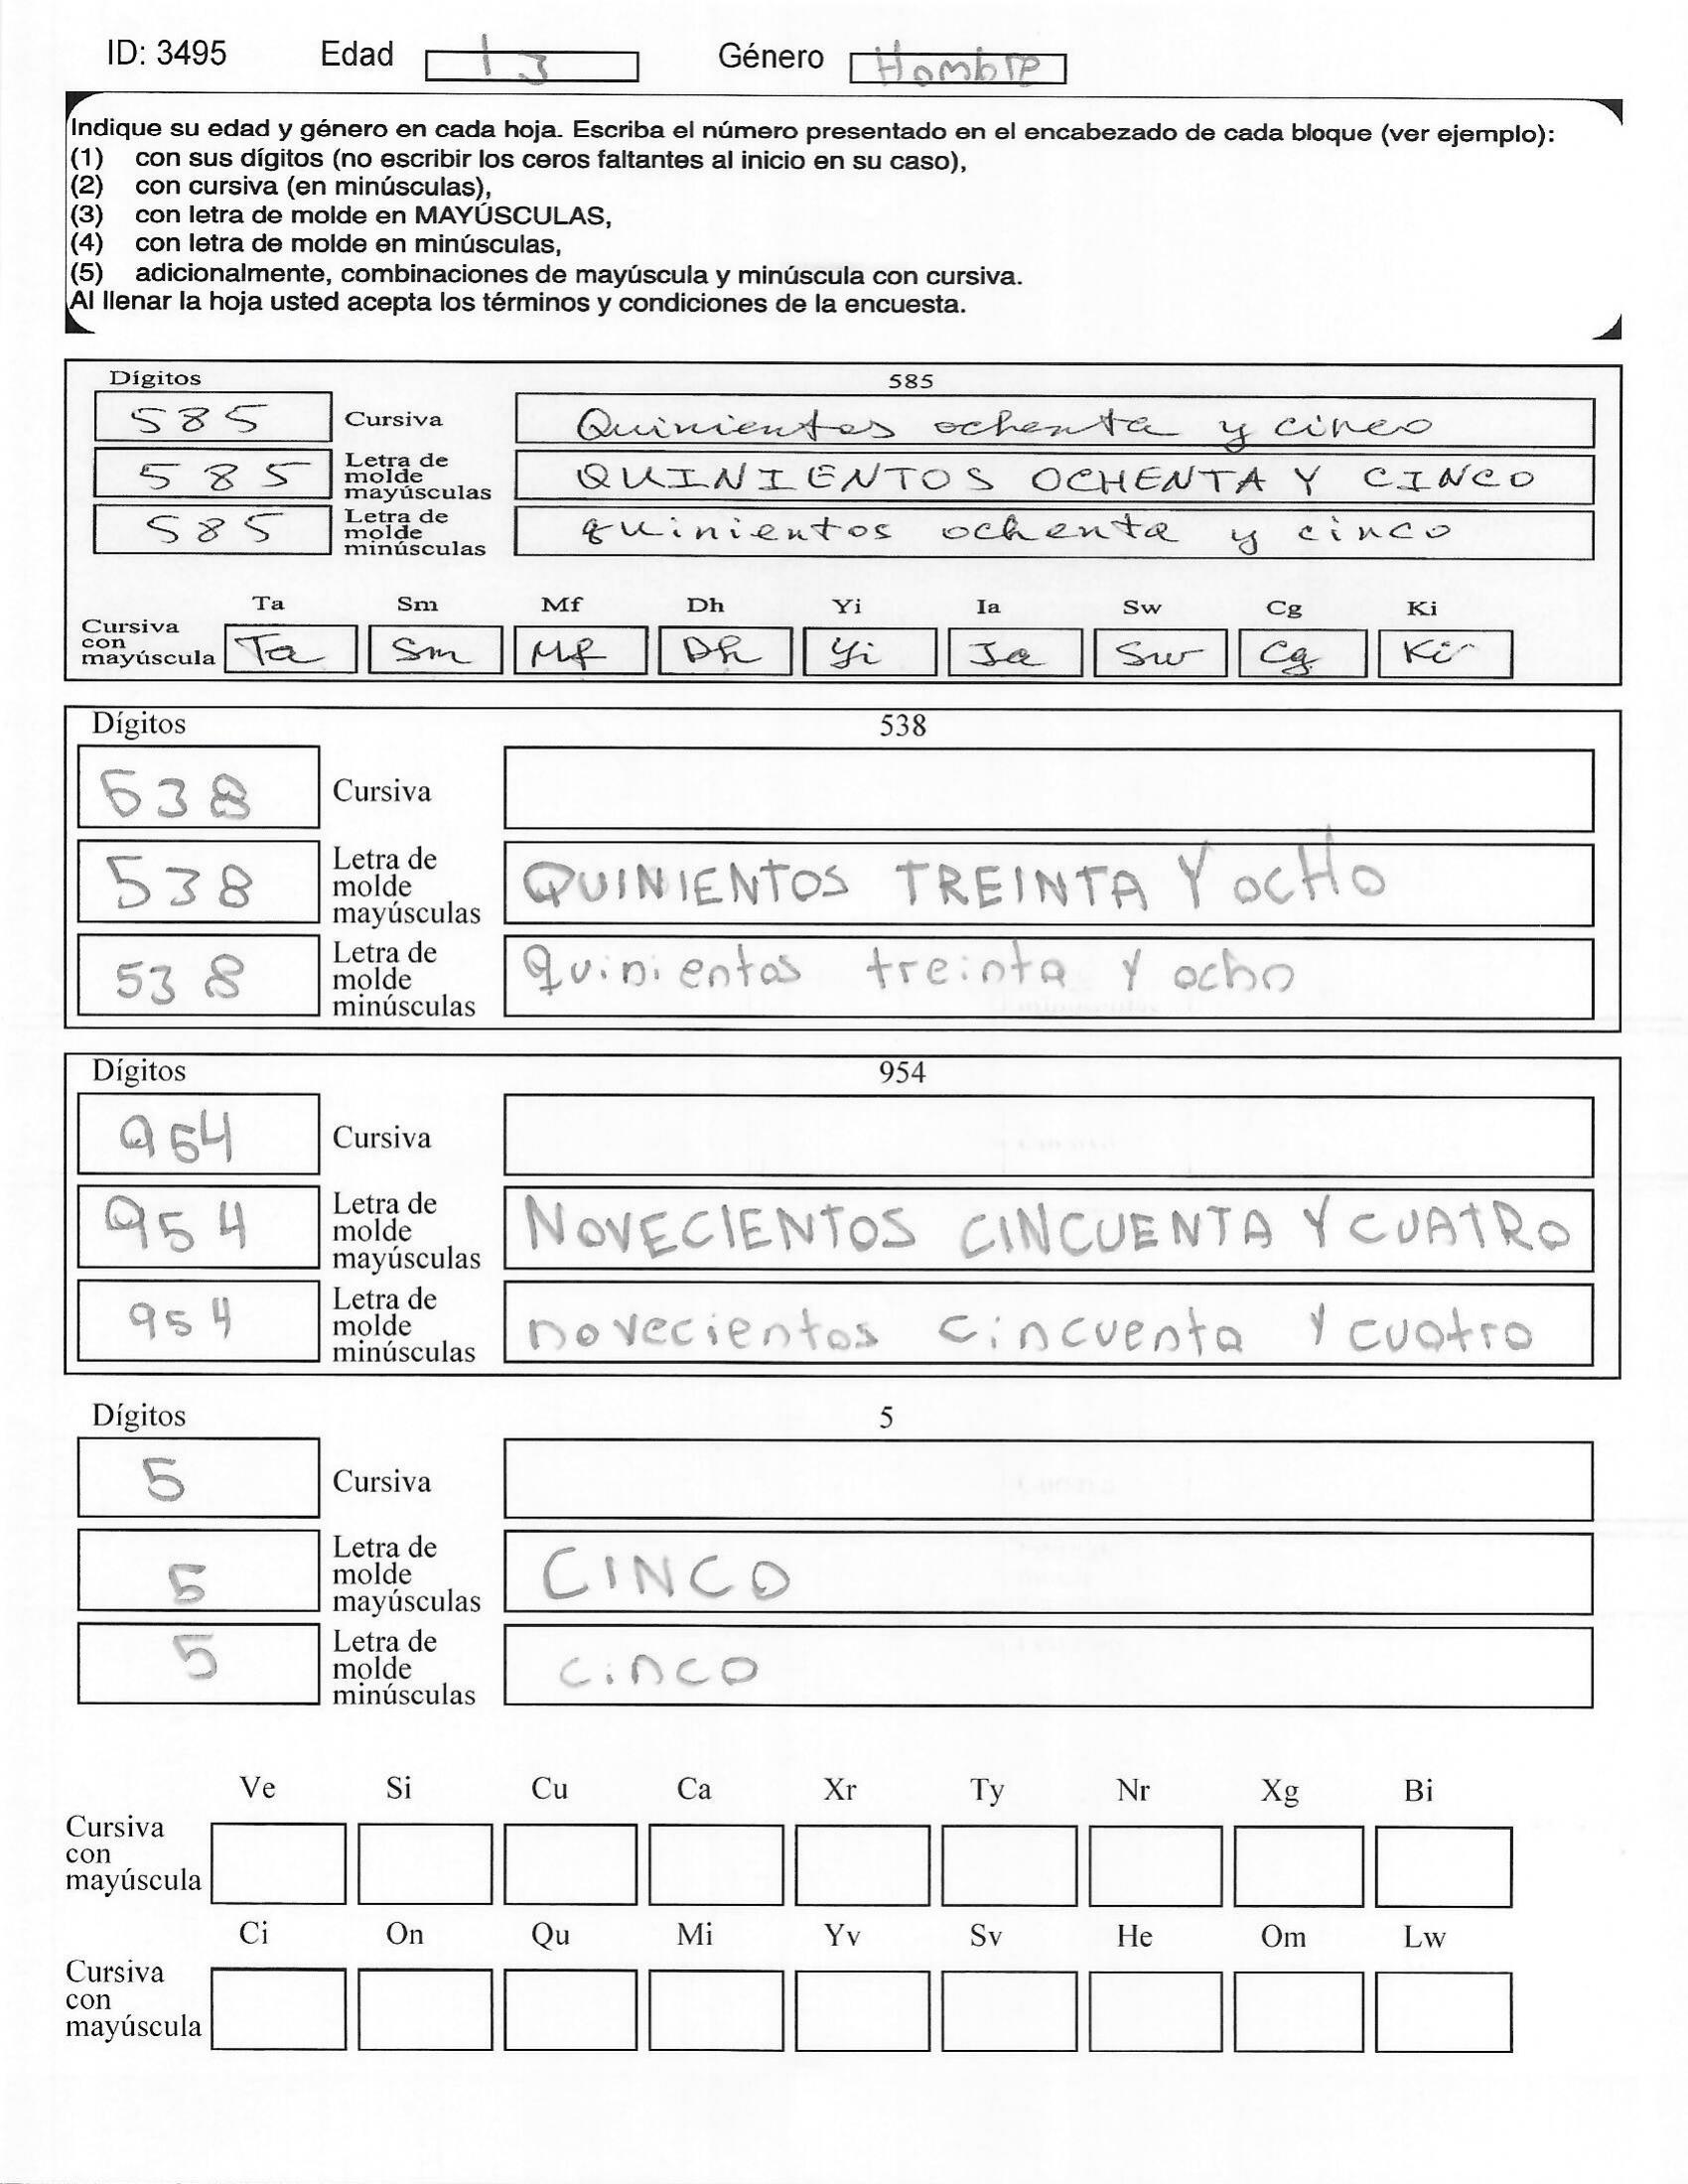 ID: 3495 Edad 13 Género Hombre
Indique su edad y género en cada hoja. Escriba el número presentado en el encabezado de cada bloque (ver ejemplo):
(1) con sus dígitos (no escribir los ceros faltantes al inicio en su caso),
(2) con cursiva (en minúsculas),
(3) con letra de molde en MAYÚSCULAS,
(4) con letra de molde en minúsculas,
(5) adicionalmente, combinaciones de mayúscula y minúscula con cursiva.
Al llenar la hoja usted acepta los términos y condiciones de la encuesta.
Dígitos 585
585 Cursiva Quinientos ochenta y cinco
585 Letra de molde mayúsculas QUINIENTOS OCHENTA Y CINCO
585 Letra de molde minúsculas quinientos ochenta y cinco
Ta Sm Mf Dh Yi Ia Sw Cg Ki
Cursiva con mayúscula Ta Sm Mf Dh Yi Ia Sw Cg Ki
Dígitos 538
538 Cursiva
538 Letra de molde mayúsculas QUINIENTOS TREINTA Y OCHO
538 Letra de molde minúsculas quinientos treinta y ocho
Dígitos 954
954 Cursiva
954 Letra de molde mayúsculas NOVECIENTOS CINCUENTA Y CUATRO
954 Letra de molde minúsculas novecientos cincuenta y cuatro
Dígitos 5
5 Cursiva
5 Letra de molde mayúsculas CINCO
5 Letra de molde minúsculas cinco
Ve Si Cu Ca Xr Ty Nr Xg Bi
Cursiva con mayúscula
Ci On Qu Mi Yv Sv He Om Lw
Cursiva con mayúscula